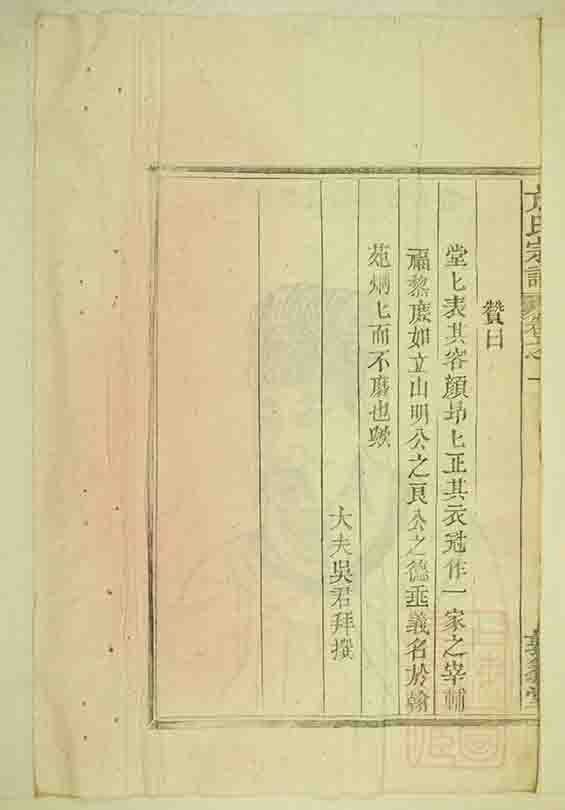 氏宗譜
卷之一
贊曰
堂匕表其容顏昻匕正其衣冠作一家之宰輔
福黎庶如立山明公之良公之德垂義名於翰
苑炳匕而不磨也歟
大夫吳君拜撰